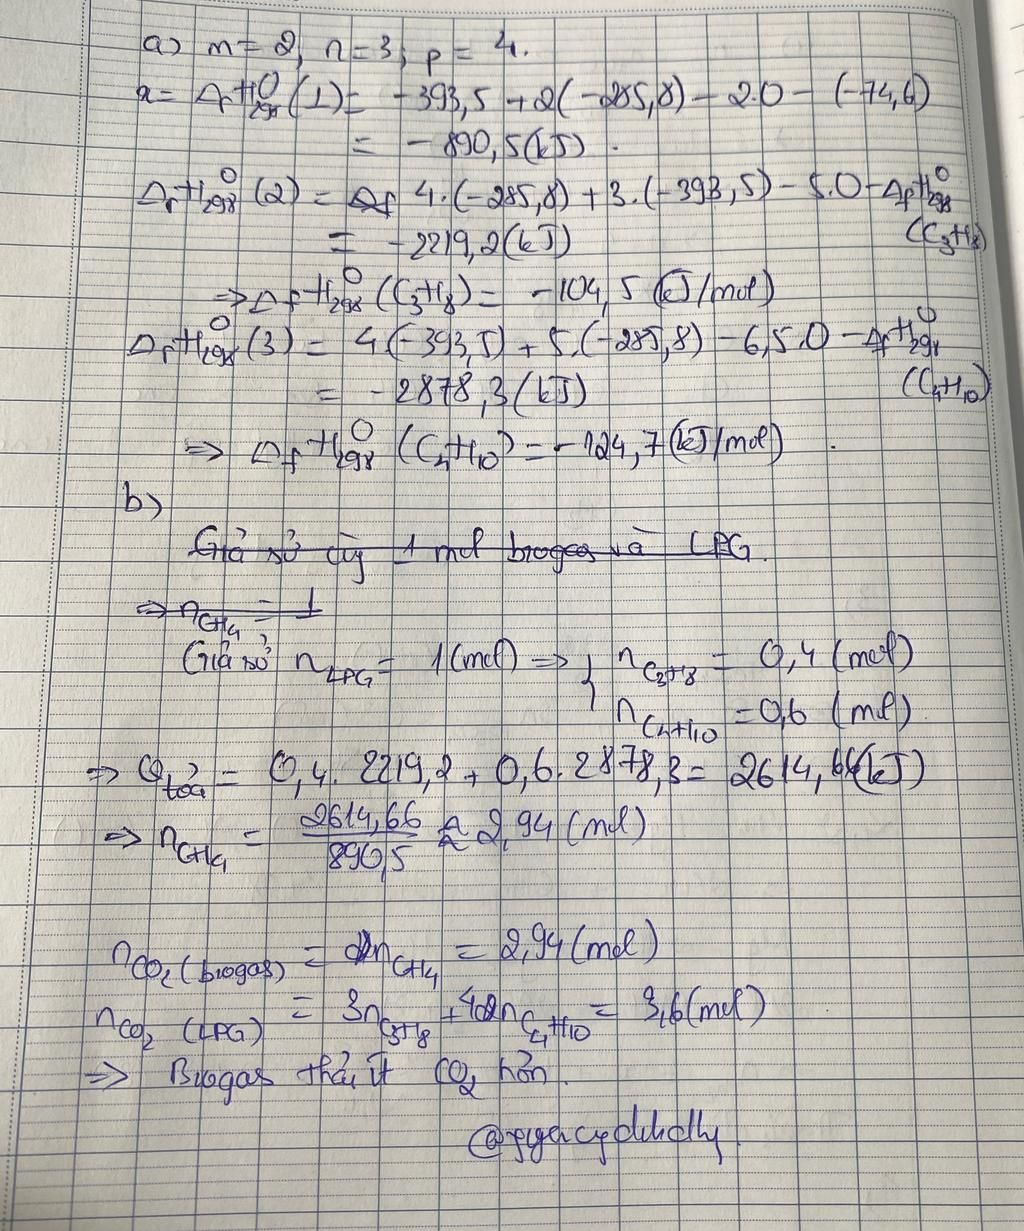 a) m = 2, n = 3, p = 4.
x = ΔrH⁰₂₉₈ (1) = -393,5 + 2(-285,8) - 2.0 - (-74,6)
= - 890,5 (kJ).
ΔrH⁰₂₉₈ (2) = 4.(-285,8) + 3.(-393,5) - 5.0 - ΔfH⁰₂₉₈
(C₃H₈)
= -2219,2 (kJ)
⇒ ΔfH⁰₂₉₈ (C₃H₈) = -104,5 (kJ/mol)
ΔrH⁰₂₉₈ (3) = 4(-393,5) + 5.(-285,8) - 6,5.0 - ΔfH⁰₂₉₈
(C₄H₁₀)
= -2878,3 (kJ)
⇒ ΔfH⁰₂₉₈ (C₄H₁₀) = -124,7 (kJ/mol).
b)
Giả sử cùng 1 mol biogas và LPG.
⇒ nCH₄ = 1
Giả sử nLPG = 1 (mol) ⇒ { nC₃H₈ = 0,4 (mol)
nC₄H₁₀ = 0,6 (mol).
⇒ Qtoả = 0,4. 2219,2 + 0,6. 2878,3 = 2614,66 (kJ)
⇒ nCH₄ = 2614,66 / 890,5 ≈ 2,94 (mol)
nCO₂ (biogas) = nCH₄ = 2,94 (mol)
nCO₂ (LPG) = 3nC₃H₈ + 4nC₄H₁₀ = 3,6 (mol)
⇒ Biogas thải ít CO₂ hơn.